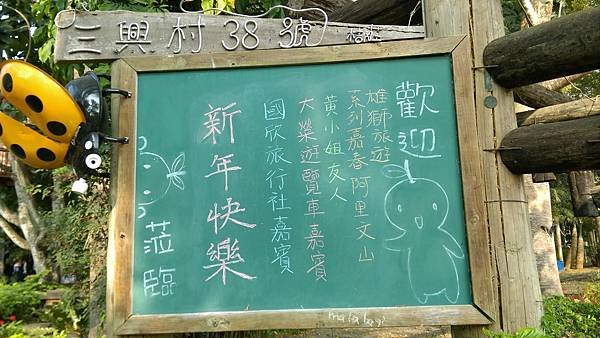 三興村38號
歡迎
雄獅旅遊
系列嘉春阿里文山
黃小姐友人
大樂遊覽車嘉賓
國欣旅行社嘉賓
新年快樂
蒞臨